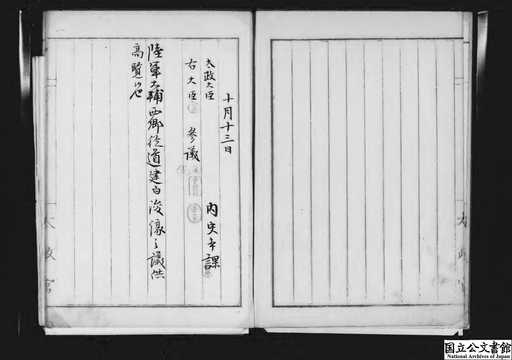 十月十三日
内史本課
太政大臣
右大臣
参議
陸軍大輔西郷従道建白浚濠之議供
高覧候也
太政官
国立公文書館
National Archives of Japan